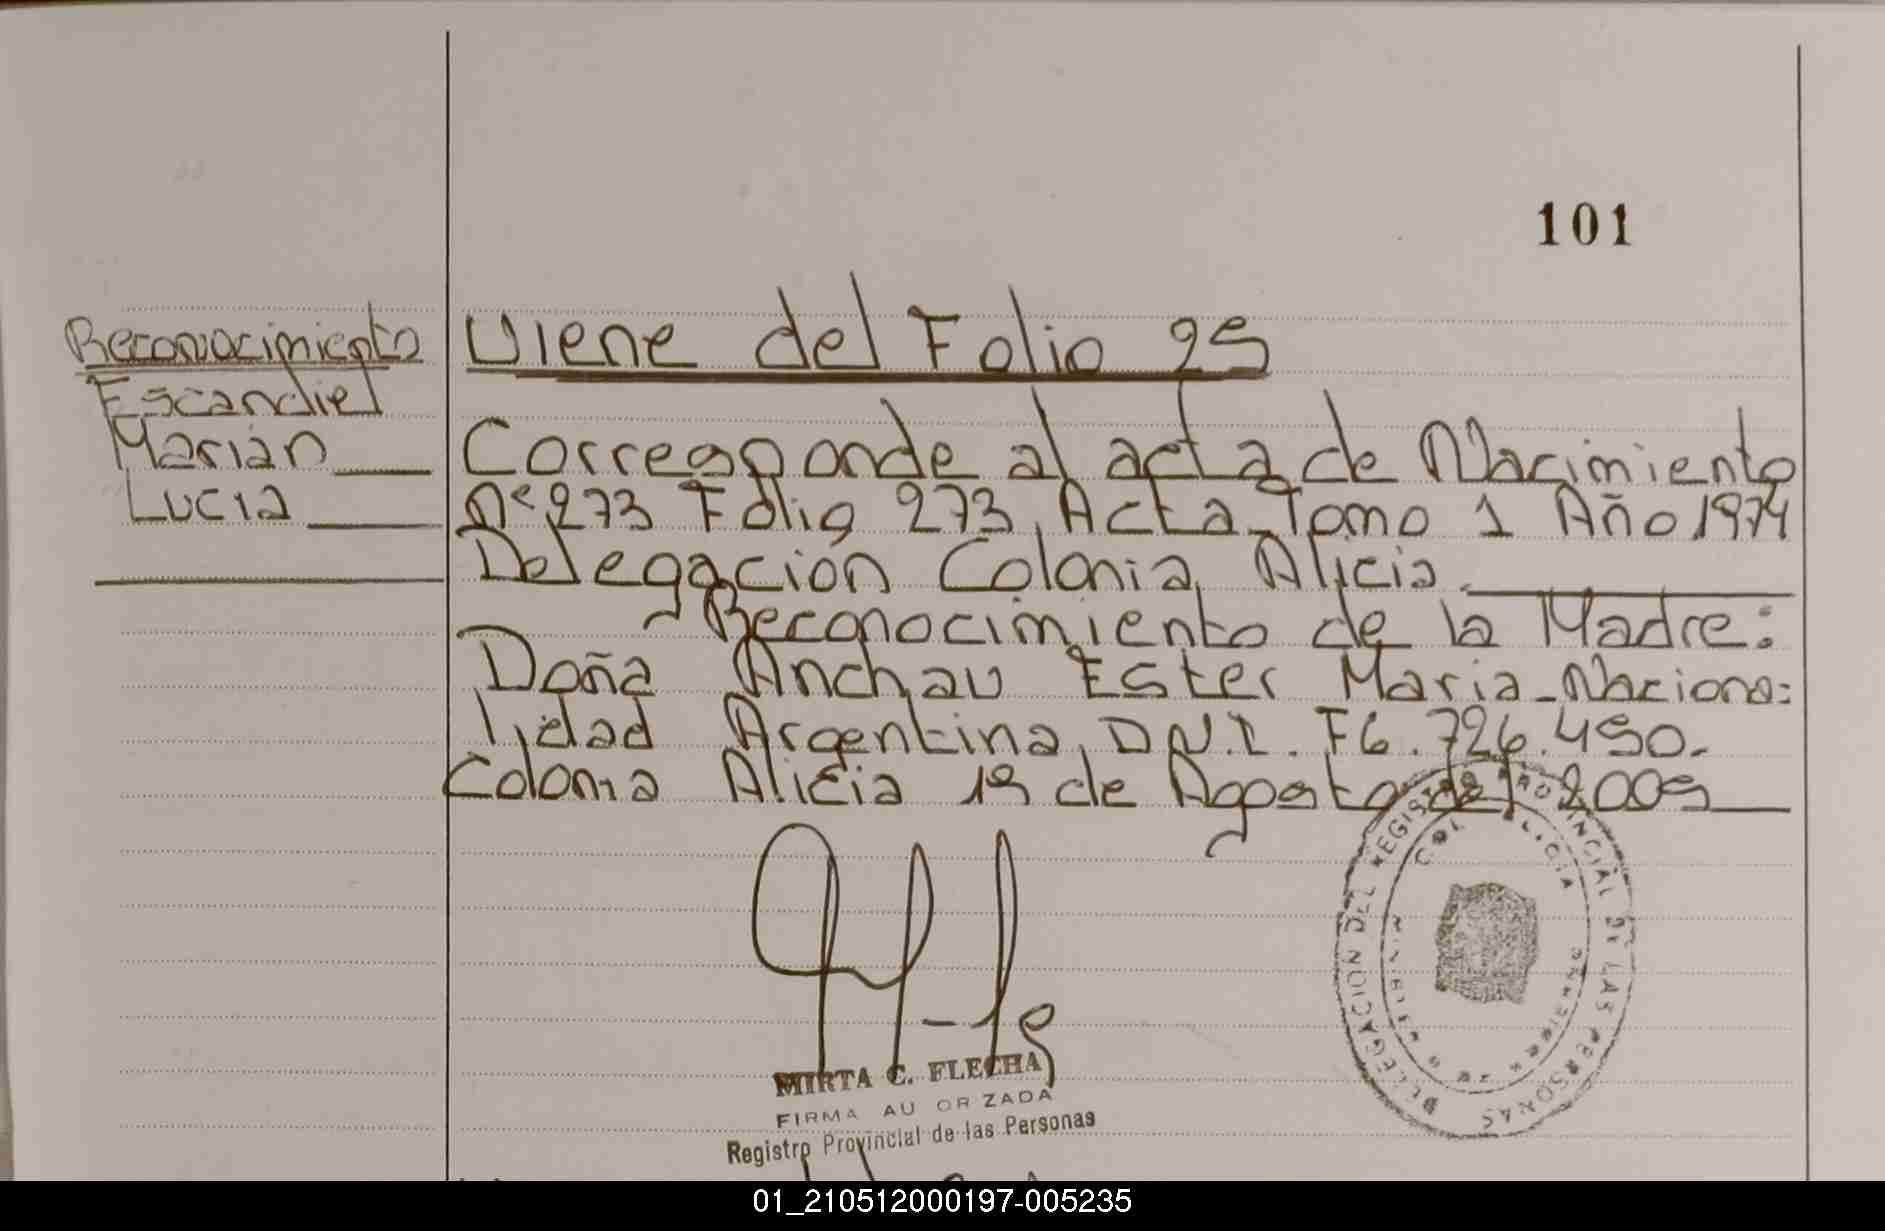 101
Reconocimiento
Escandiel
Marián
Lucia
Viene del Folio 95
Corresponde al acta de Nacimiento
Nº 273 Folio 273, Acta Tomo 1 Año 1974
Delegación Colonia Alicia
Reconocimiento de la Madre:
Doña Anchau Ester Maria - Naciona=
lidad Argentina, D.N.I. F6.726.450.
Colonia Alicia 19 de Agosto del 2009
MIRTA C. FLECHA
FIRMA AU OR ZADA
Registro Provincial de las Personas
DELEGACION DEL REGISTRO PROVINCIAL DE LAS PERSONAS
01_210512000197-005235